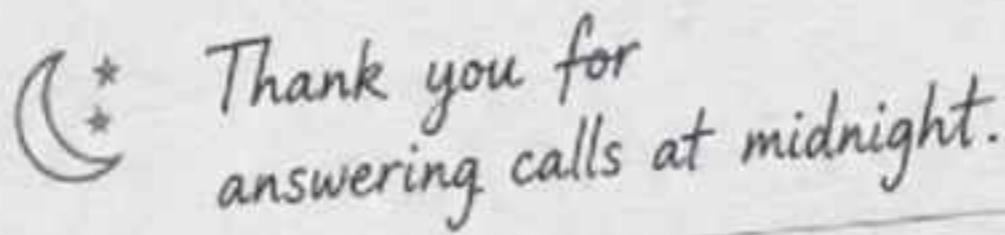 Thank you for
answering calls at midnight.